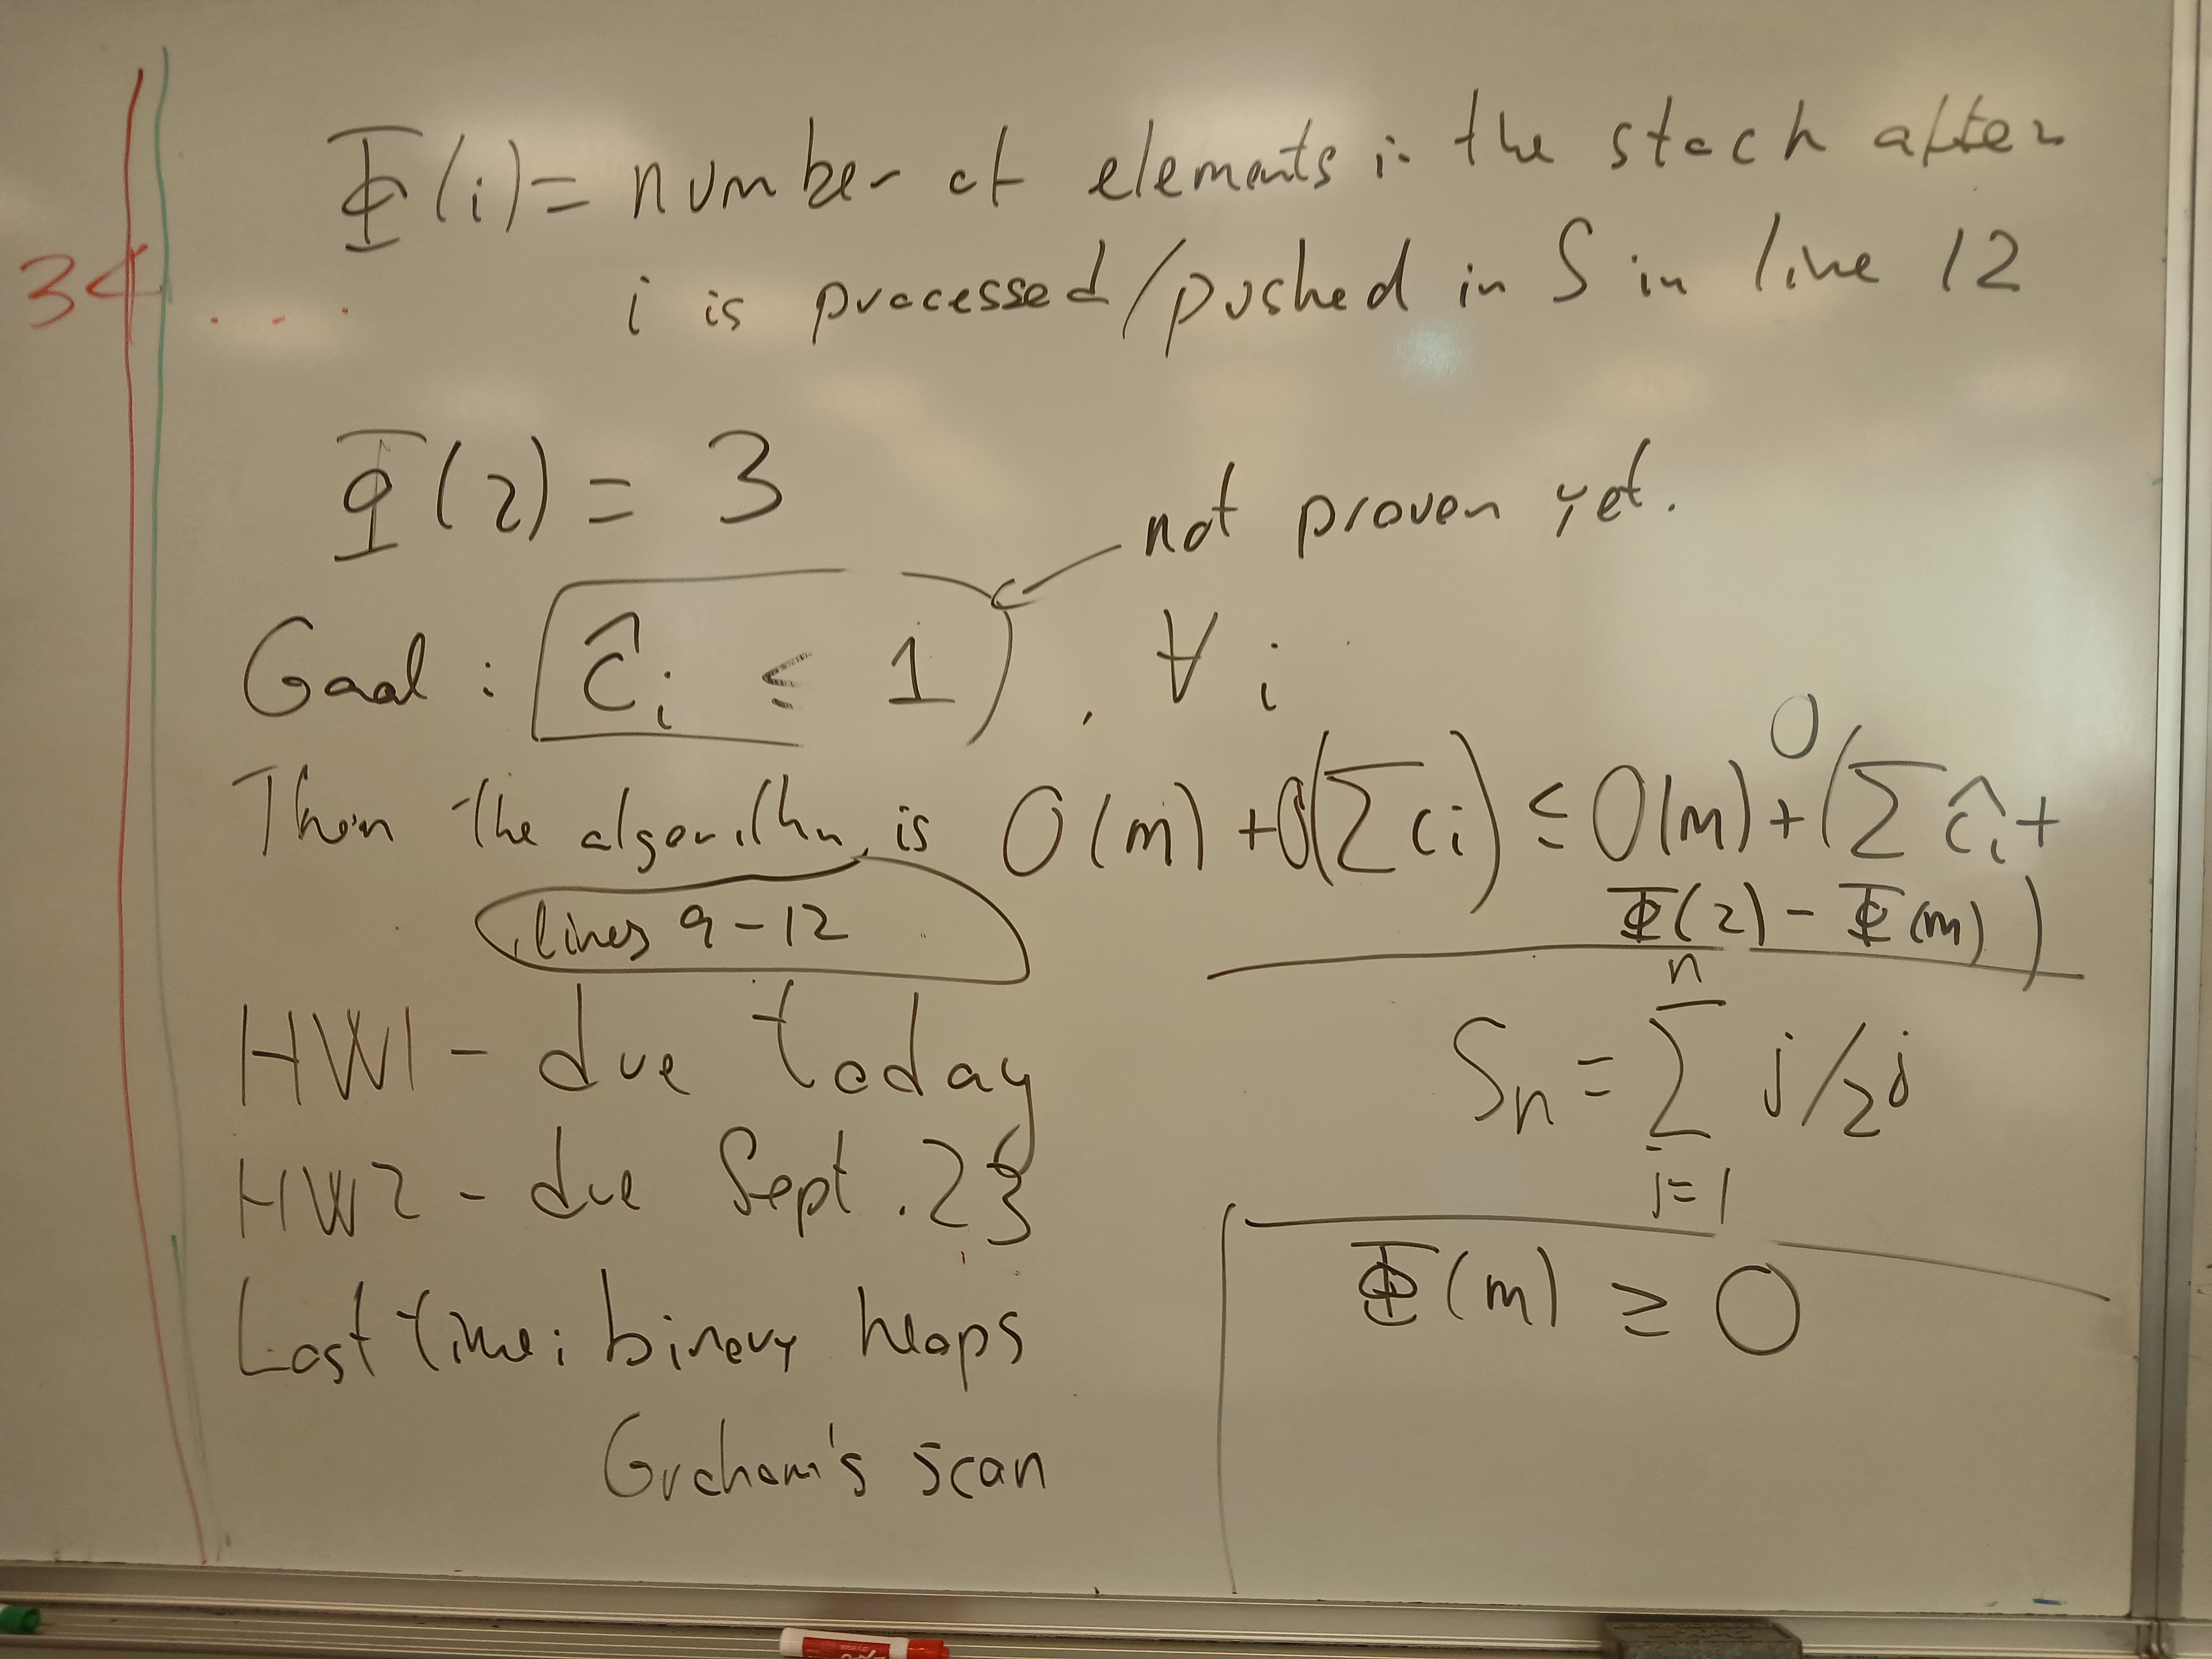 Φ(i) = number of elements in the stack after
i is processed/pushed in S in line 12
34 ...
Φ(2) = 3
not proven yet.
Goal : ĉᵢ ≤ 1 , ∀ i
Then the algorithm is O(m) + O(∑ cᵢ) ≤ O(m) + O(∑ ĉᵢ +
Φ(2) - Φ(m))
lines 9-12
HW1 - due today
HW2 - due Sept. 23
Last time: binary heaps
Graham's scan
n
Sn = ∑ j/2ʲ
j=1
Φ(m) ≥ 0